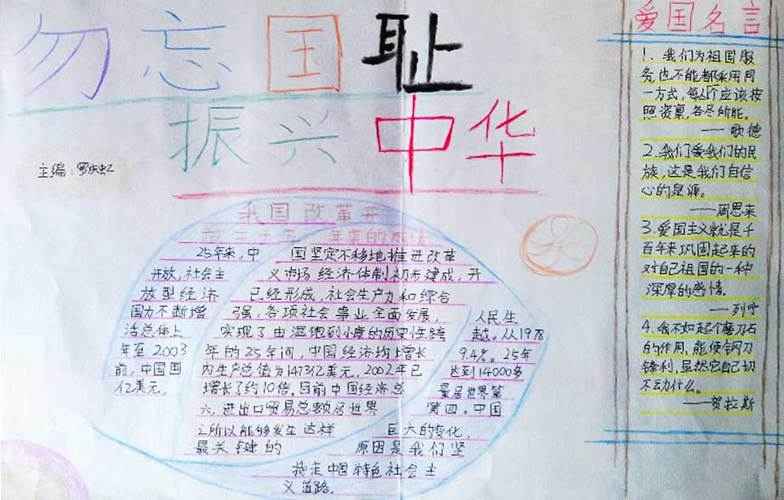 勿忘国耻
振兴中华
主编:
我国改革开
25年来,中 国坚定不移地推进改革
开放,社会主 义市场经济体制初步建成,开
放型经济 已经形成,社会生产力和综合
国力不断增 强,各项社会事业全面发展, 人民生
活总体上 实现了由温饱到小康的历史性跨 越。从1978
年至2003 年的25年间,中国经济均增长 9.4%。25年
前,中国国 内生产总值为1473亿美元,2002年已 达到14000多
亿美元。 增长了约10倍。目前中国经济总 量居世界第
六,进出口贸易总额居世界 第四。中国
之所以能够发生这样 巨大的变化,
最关键的 原因是我们坚
持走中国特色社会主
义道路。
爱国名言
1、我们为祖国服
务也不能都采用同
一方式,每个人应该按
照资禀,各尽所能。
——歌德
2.我们爱我们的民
族,这是我们自信
心的泉源。
——周恩来
3.爱国主义就是千
百年来巩固起来的
对自己祖国的一种
深厚的感情。
——列宁
4.我不如起个磨刀石
的作用,能使钢刀
锋利,虽然它自己切
不动什么。
——贺拉斯